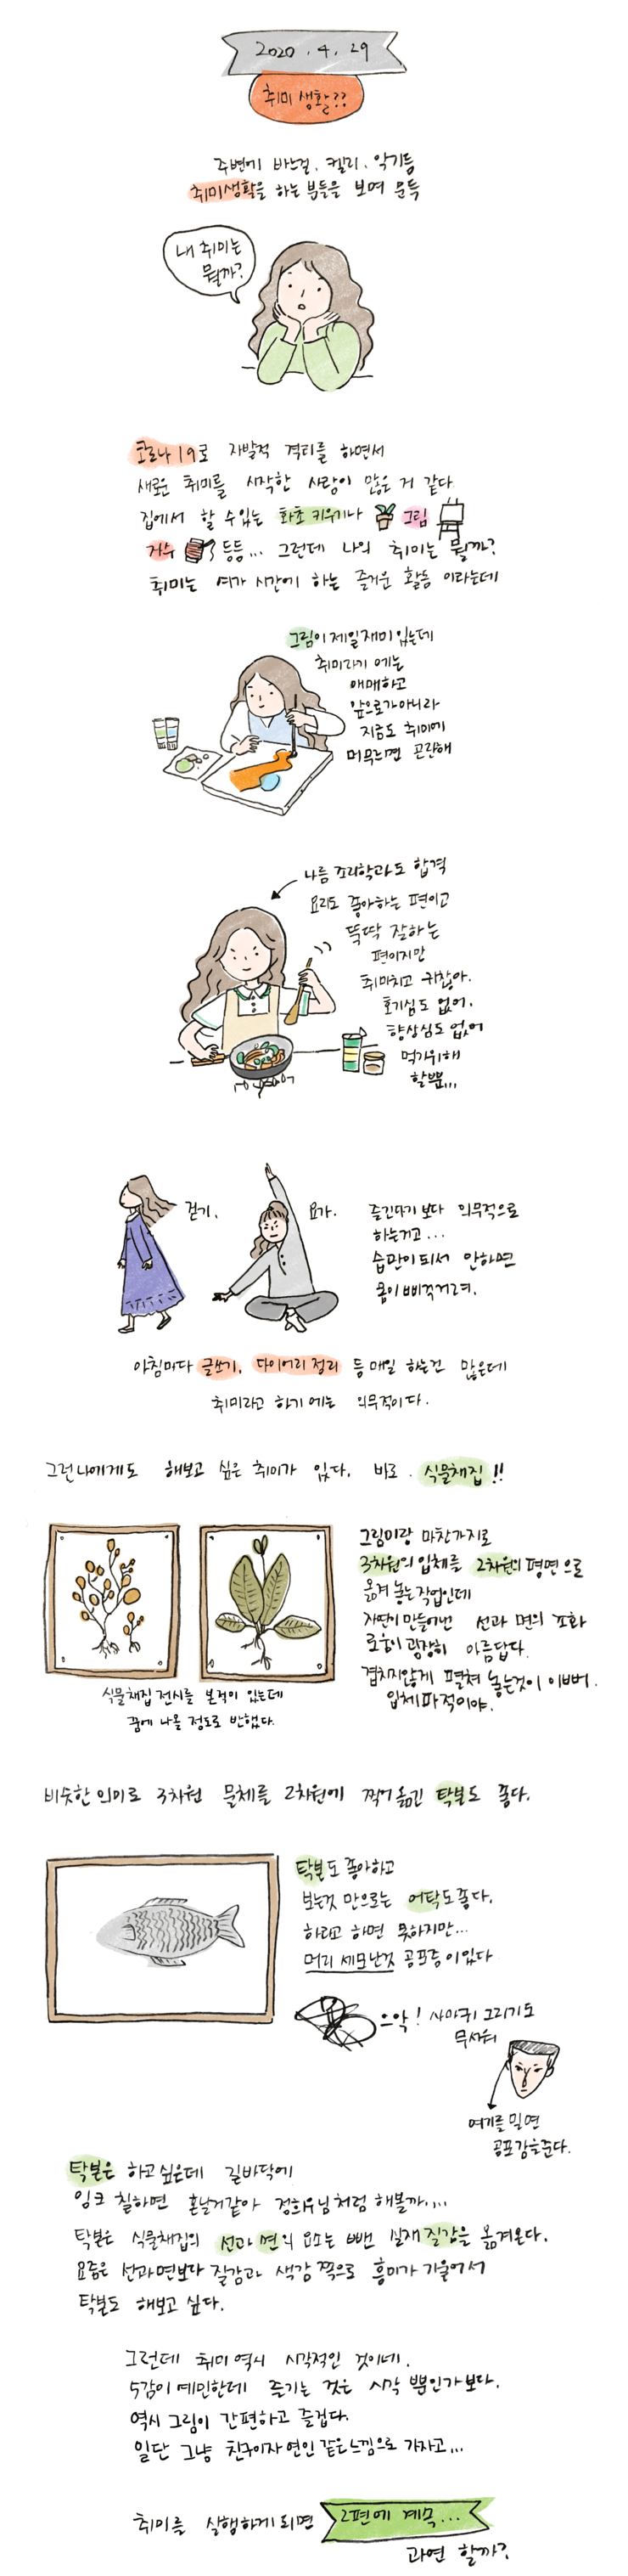 2020. 4. 29
취미 생활??
주변에 바느질, 켈리, 악기등
취미생활을 하는 분들을 보며 문득
내 취미는
뭘까?
코로나19로 자발적 격리를 하면서
새로운 취미를 시작한 사람이 많은 거 같다.
집에서 할 수 있는 화초 키우기나 그림
자수 등등... 그런데 나의 취미는 뭘까?
취미는 여가 시간에 하는 즐거운 활동 이라는데
그림이 제일 재미 있는데
취미라기 에는
애매하고
앞으로가 아니라
지금도 취미에
머무르면 곤란해
나름 조리학과도 합격
요리도 좋아하는 편이고
뚝딱 잘하는
편이지만
취미치고 귀찮아.
호기심도 없어.
향상심도 없어
먹기위해
할뿐...
걷기,
요가.
즐긴다기 보다 의무적으로
하는거고...
습관이 되서 안하면
몸이 삐걱거려.
아침마다 글쓰기, 다이어리 정리 등 매일 하는건 많은데
취미라고 하기 에는 의무적이다.
그런 나에게도 해보고 싶은 취미가 있다. 바로. 식물채집!!
그림이랑 마찬가지로
3차원의 입체를 2차원의 평면으로
옮겨 놓는 작업인데
자연이 만들어낸 선과 면의 조화
로움이 굉장히 아름답다.
겹치지않게 펼쳐 놓는것이 이뻐.
입체파적이야.
식물채집 전시를 본적이 있는데
꿈에 나올 정도로 반했다.
비슷한 의미로 3차원 물체를 2차원에 찍어 옮긴 탁본도 좋다.
탁본도 좋아하고
보는것 만으로는 어탁도 좋다.
하라고 하면 못하지만...
머리 세모난것 공포증이 있다
으악! 사마귀 그리기도
무서워
여기를 밀면
공포감을 준다.
탁본은 하고 싶은데 길바닥에
잉크 칠하면 혼날거같아 정희우님처럼 해볼까....
탁본은 식물채집의 선과 면의 요소는 뺀 실재 질감을 옮겨온다.
요즘은 선과 면보다 질감과 색감 쪽으로 흥미가 기울어서
탁본도 해보고 싶다.
그런데 취미 역시 시각적인 것이네.
5감이 예민한데 즐기는 것은 시각 뿐인가 보다.
역시 그림이 간편하고 즐겁다.
일단 그냥 친구이자 연인 같은 느낌으로 가자고...
취미를 실행하게 되면 2편에 계속...
과연 할까?